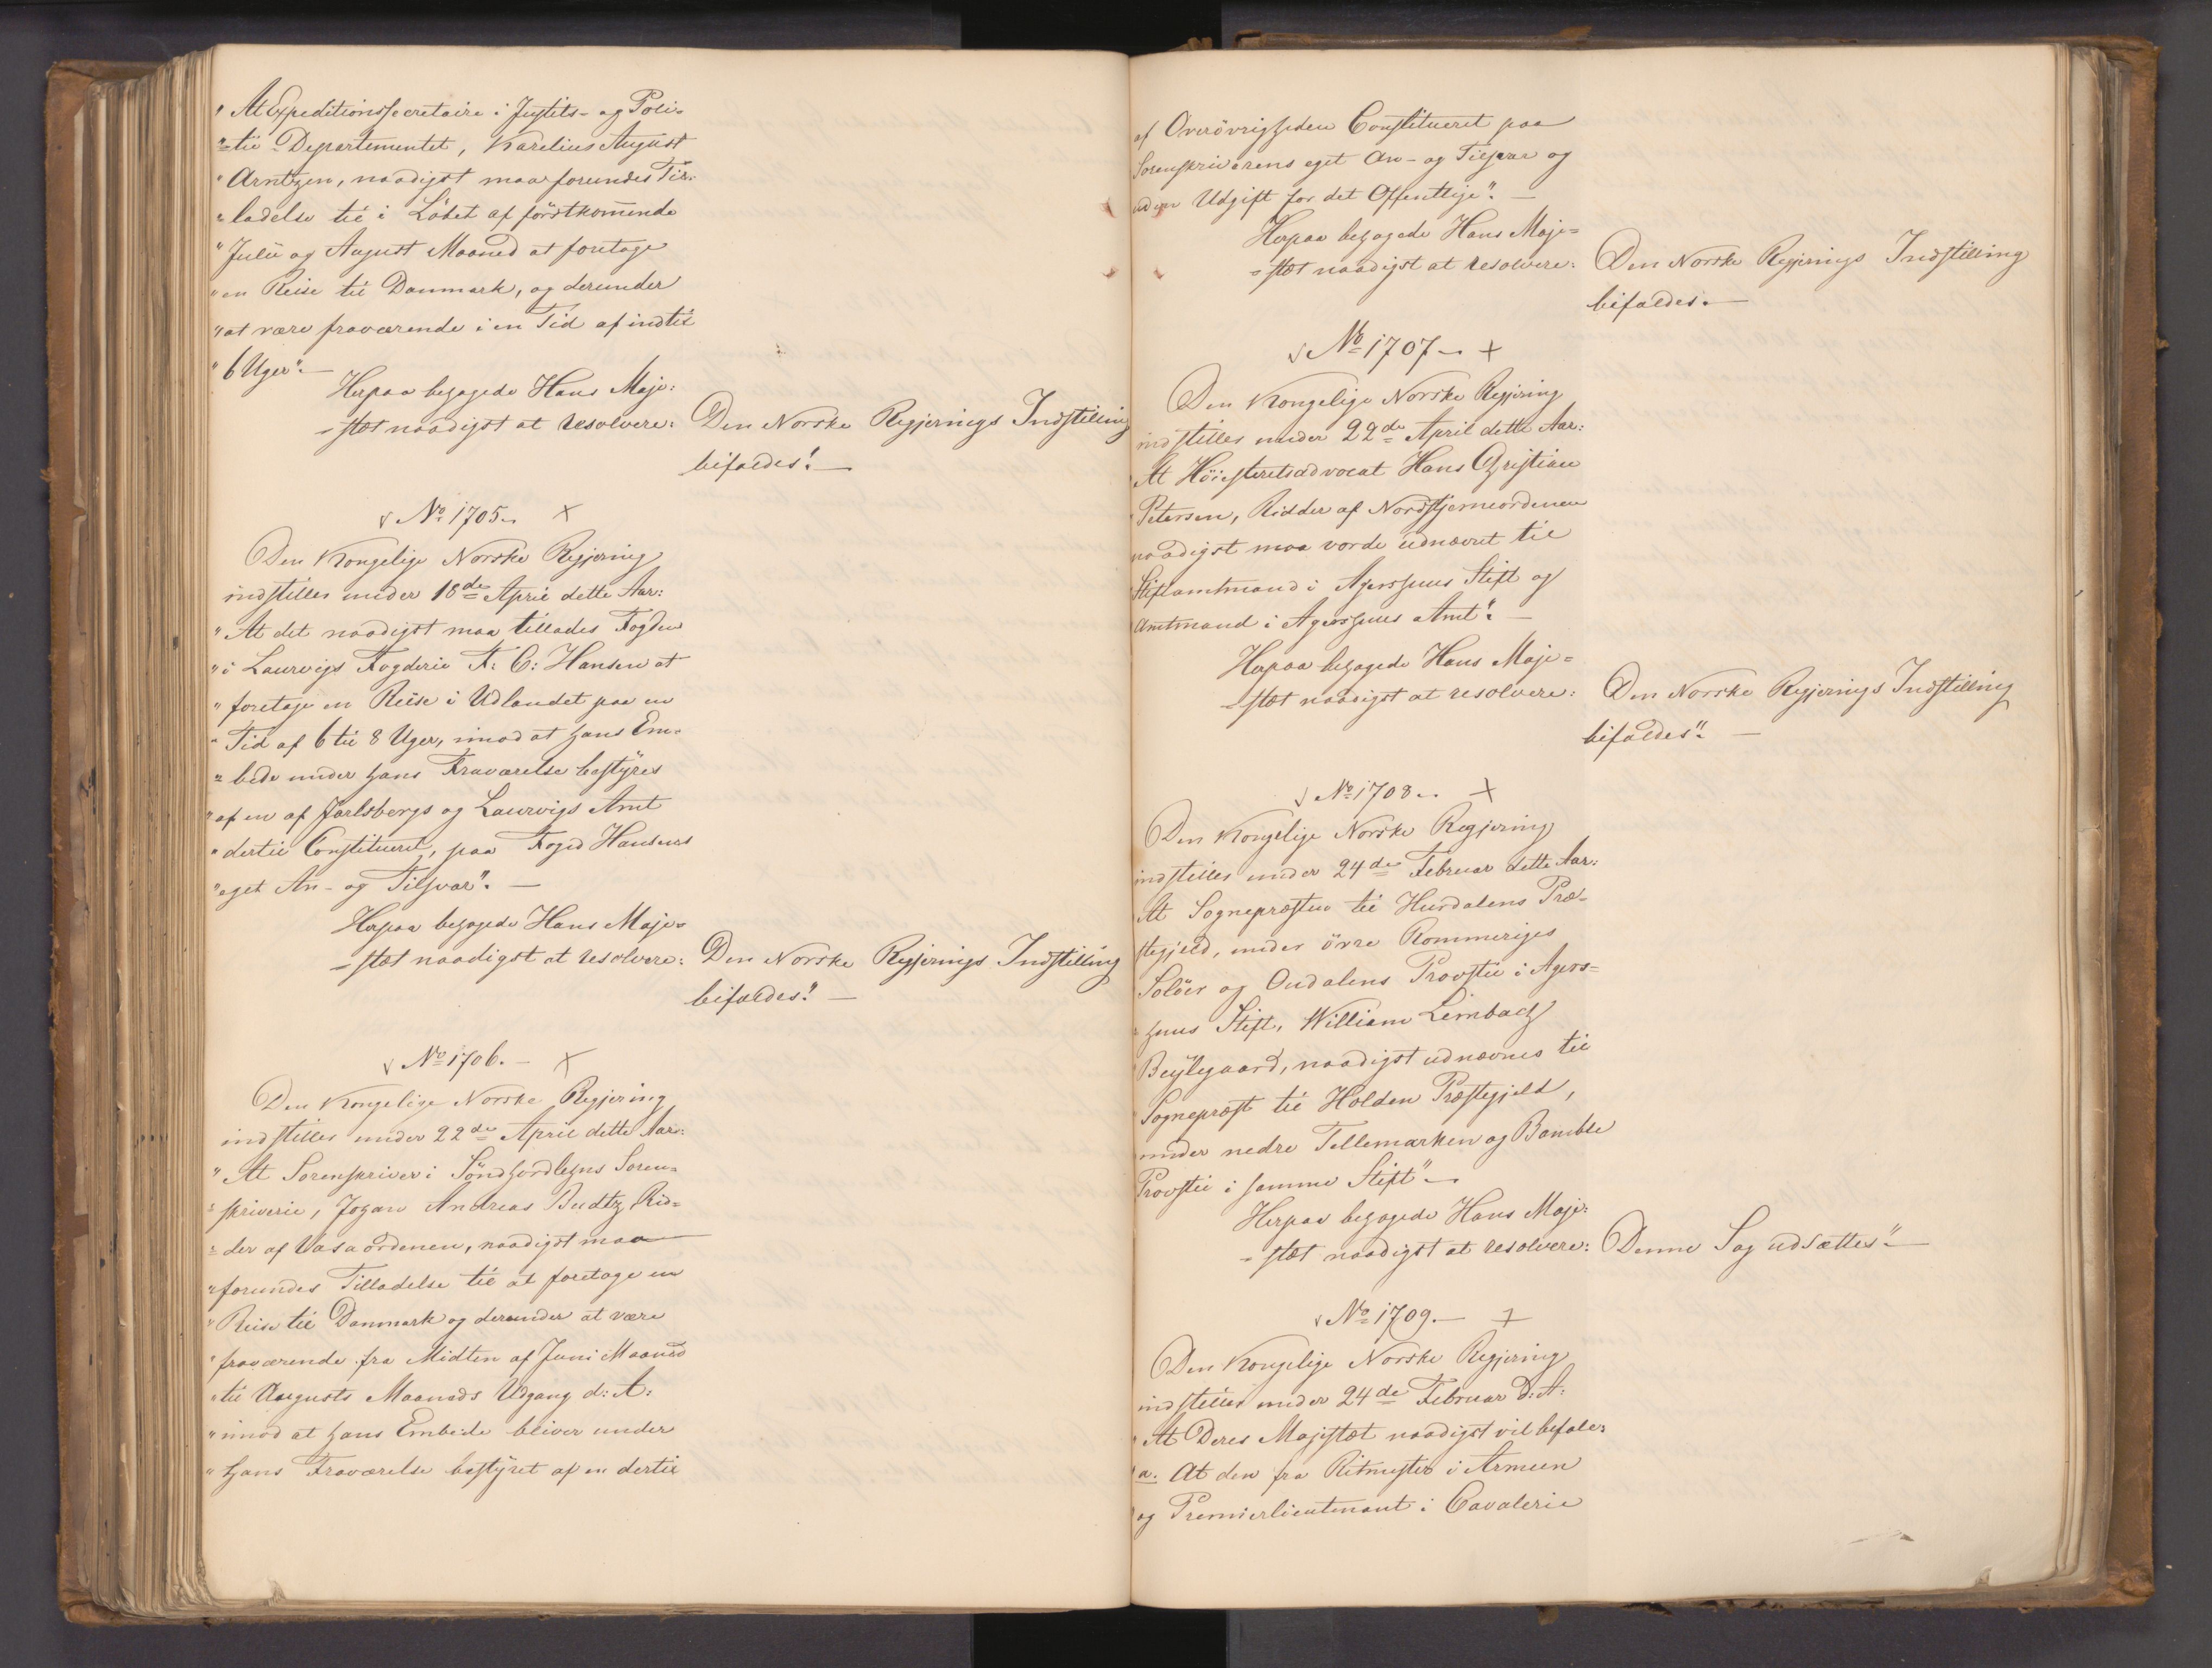 "At Expeditionssecretaire i Justits- og Poli-
"=tie-Departementet, Karelius August
"Arntzen, naadigst maa forundes Til-
"ladelse til i Löbet af förstkommende
"Julii og August Maaned at foretage
"en Reise til Danmark, og derunder
"at være fraværende i en Tid af indtil
"6 Uger".—
Herpaa behagede Hans Maje:
=stæt naadigst at resolvere: Den Norske Regjerings Indstilling
bifaldes"—
No 1705. X
Den Kongelige Norske Regjering
indstiller under 18de April dette Aar:
"At det naadigst maa tillades Fogden
"i Laurvigs Fogderie F: C: Hansen at
"foretage en Reise i Udlandet paa en
"Tid af 6 til 8 Uger, imod at hans Em=
"bede under hans Fraværelse bestyres
"af en af Jarlsbergs og Laurvigs Amt
"dertil Constitueret, paa Foged Hansens
"eget An- og Tilsvar".—
Herpaa behagede Hans Maje=
=stæt naadigst at resolvere: Den Norske Regjerings Indstilling
bifaldes"—
No 1706.— X
Den Kongelige Norske Regjering
indstiller under 22de April dette Aar:
"At Sorenskriver i Söndhordlehns Soren=
"skriverie, Johan Andreas Budtz, Rid=
"der af Vasaordenen, naadigst maa
"forundes Tilladelse til at foretage en
"Reise til Danmark og derunder at være
"fraværende fra Midten af Juni Maaned
"til Augusts Maaneds Udgang d: A:
"imod at hans Embede bliver under
"hans Fraværelse bestyret af en dertil
af Överövrigheden Constitueret paa
Sorenskriverens eget An- og Tilsvar og
uden Udgift for det Offentlige".—
Herpaa behagede Hans Maje=
=stæt naadigst at resolvere: Den Norske Regjerings Indstilling
bifaldes.—
No 1707.— X
Den Kongelige Norske Regjering
indstiller under 22de April dette Aar:
At Höiesteretsadvocat Hans Christian
Petersen, Ridder af Nordstjerneordenen
naadigst maa vorde udnævnt til
Stiftamtmand i Agershuus Stift og
Amtmand i Agershuus Amt".—
Herpaa behagede Hans Maje=
=stæt naadigst at resolvere: Den Norske Regjerings Indstilling
bifaldes".—
No 1708.. X
Den Kongelige Norske Regjering
indstiller under 24de Februar dette Aar:
At Sognepræsten til Hurdalens Præ-
stegjeld, under övre Rommeriges
Solöer og Oudalens Provstie i Agers=
huus Stift, William Leimbach
Beylegaard, naadigst udnævnes til
Sognepræst til Holden Præstegjeld,
under nedre Tellemarken og Bamble
Provstie i samme Stift"—
Herpaa behagede Hans Maje:
=stæt naadigst at resolvere: Denne Sag udsættes"—
No 1709.— X
Den Kongelige Norske Regjering
indstiller under 24de Februar D: A:
At Deres Majestæt naadigst vil befale:
a. At den fra Ritmester i Armeen
og Premierlieutenant i Cavalerie